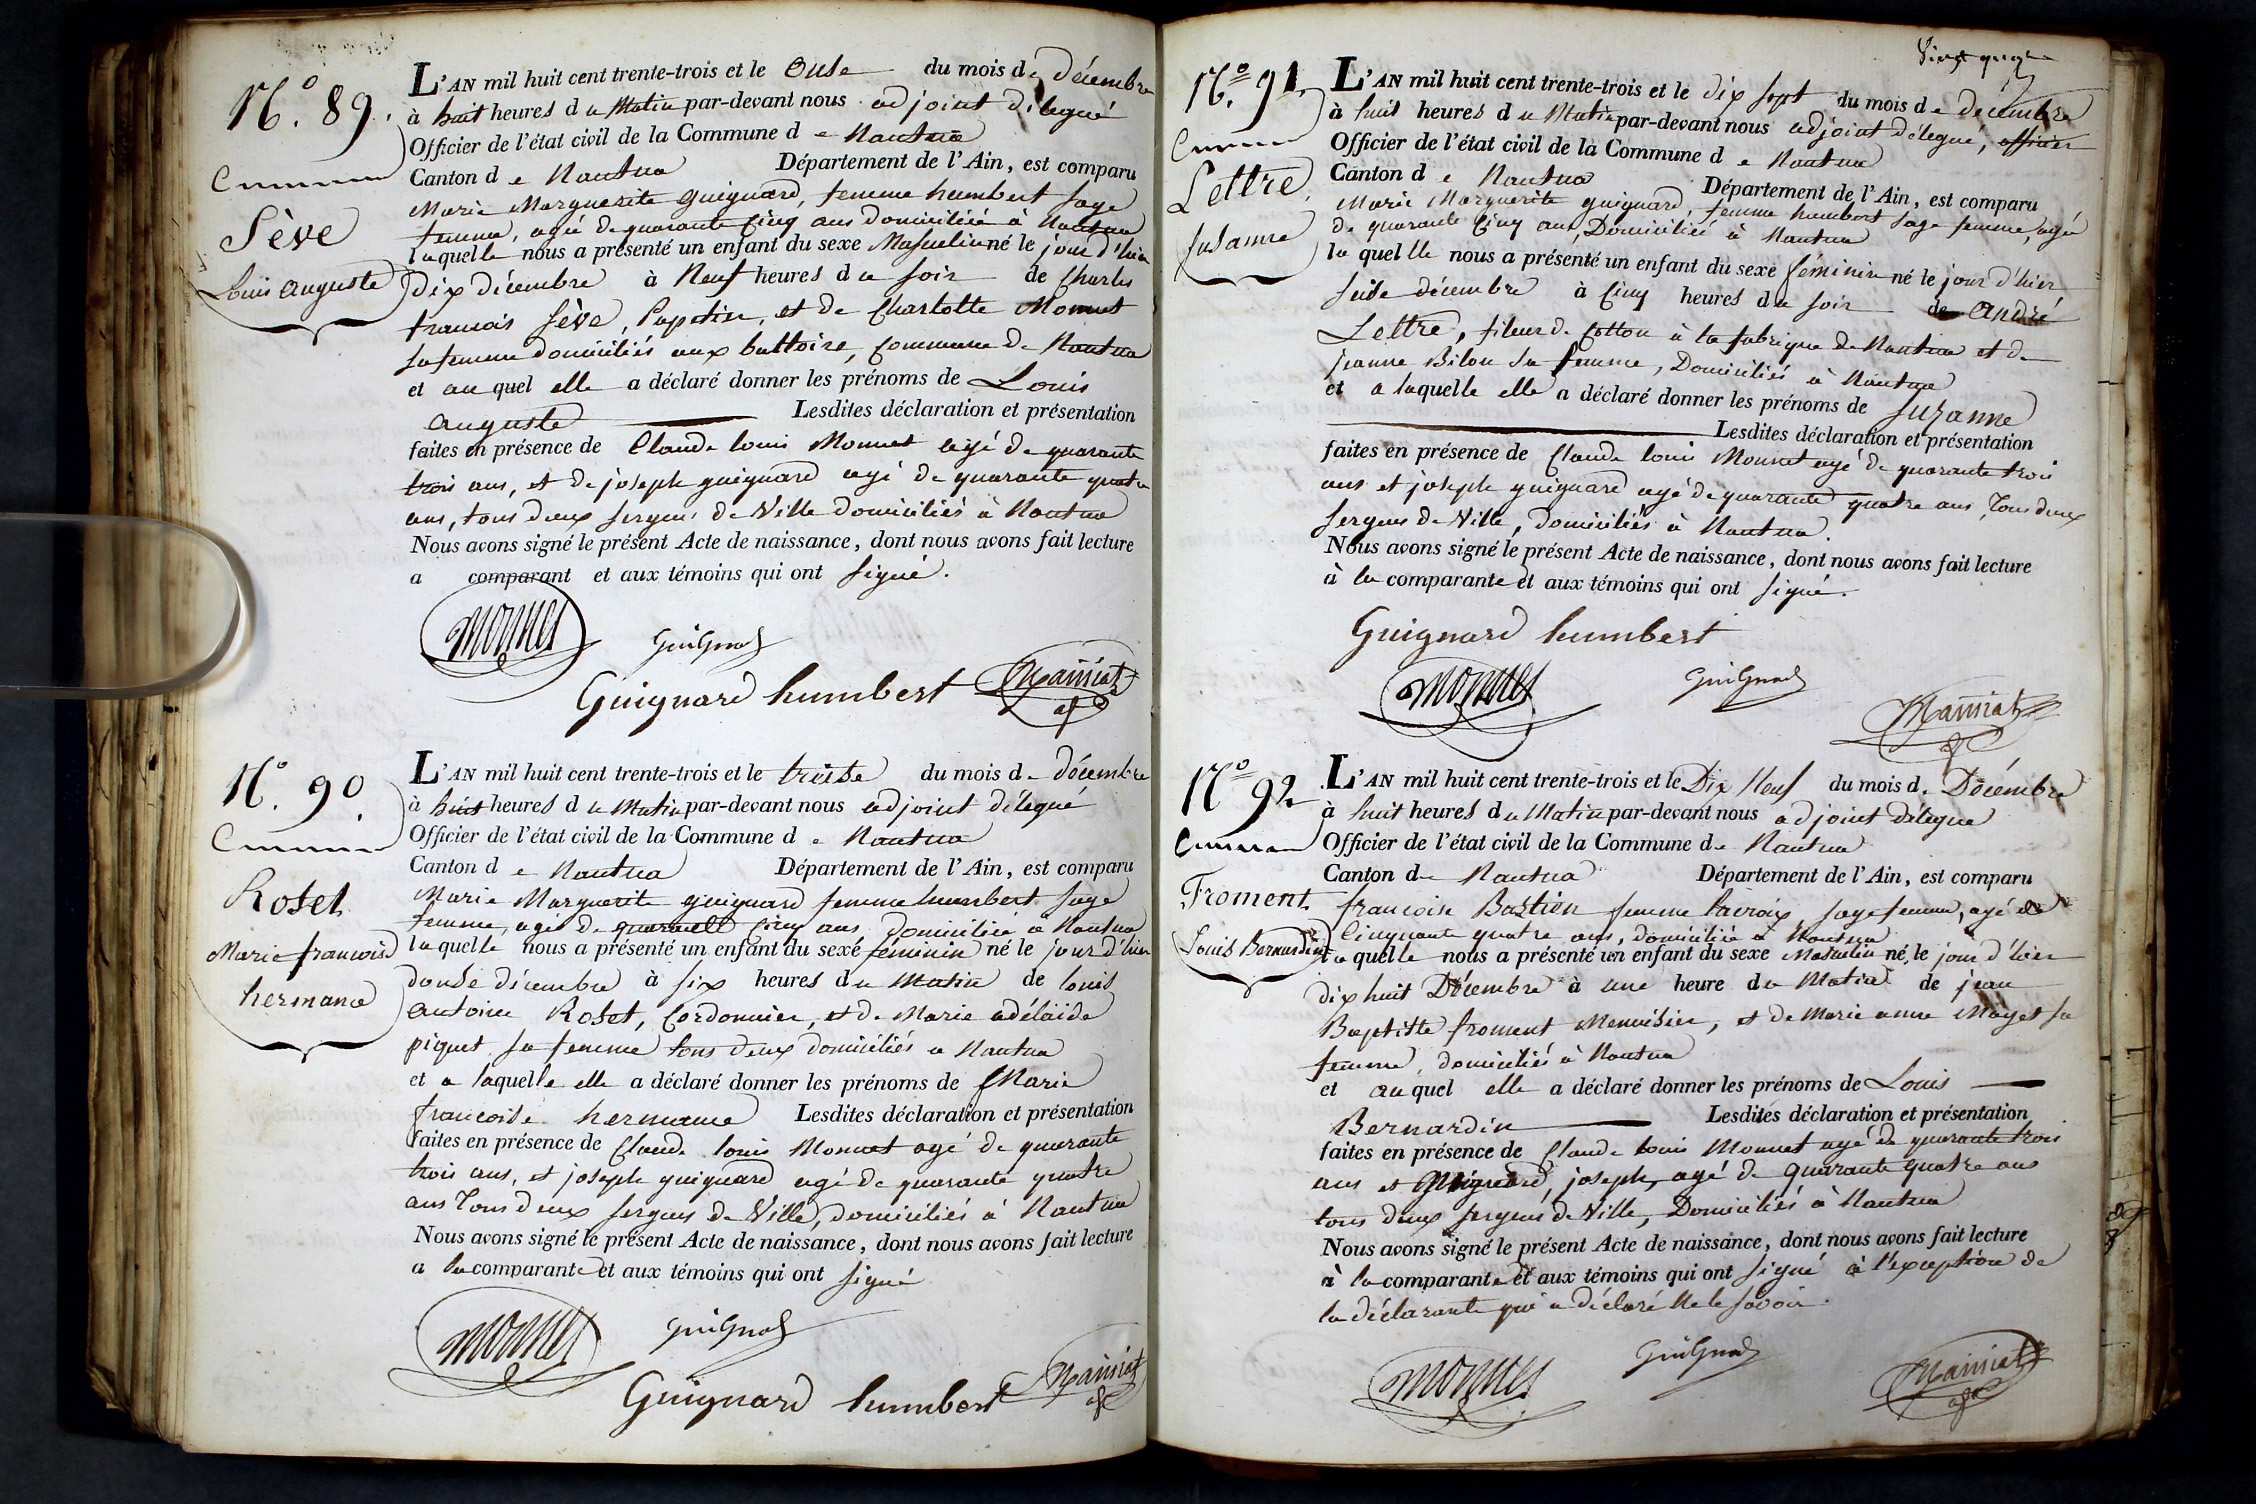 N.° 89.
Commune
Sève
Louis auguste
L'AN mil huit cent trente-trois et le Onse du mois de décembre
à huit heures du Matin par-devant nous adjoint délegué
Officier de l'état civil de la Commune de Nantua
Canton de Nantua Département de l'Ain, est comparu
Marie Marguerite guignard, femme humbert sage
femme, agée de quarante cinq ans domiciliée à Nantua
laquelle nous a présenté un enfant du sexe Masculin né le jour d'hier
dix décembre à Neuf heures du soir de Charles
francois Sève, Papetier, et de Charlotte Monnet
sa femme domiciliés aux battoire, Commune de Nantua
et au quel elle a déclaré donner les prénoms de Louis
auguste Lesdites déclaration et présentation
faites en présence de Claude louis Monnet agé de quarante
trois ans, et de joseph guignard agé de quarante quatre
ans, tous deux sergens de Ville domiciliés à Nantua
Nous avons signé le présent Acte de naissance, dont nous avons fait lecture
a comparant et aux témoins qui ont signé.
Monnet
Guignard
Guignard humbert
N.° 90.
Commune
Roset
Marie francoise
hermance
L'AN mil huit cent trente-trois et le treise du mois de décembre
à huit heures du Matin par-devant nous adjoint délegué
Officier de l'état civil de la Commune de Nantua
Canton de Nantua Département de l'Ain, est comparu
Marie Marguerite guignard femme humbert sage
femme, agée de cinq ans, domiciliée à Nantua
laquelle nous a présenté un enfant du sexe féminin né le jour d'hier
douse décembre à six heures du Matin de louis
antoine Roset, Cordonnier, et de Marie adélaïde
piquet sa femme tous deux domiciliés a Nantua
et a laquelle elle a déclaré donner les prénoms de Marie
francoise hermance Lesdites déclaration et présentation
faites en présence de Claude louis Monnet agé de quarante
trois ans, et joseph guignard agé de quarante quatre
ans Tous deux sergens de Ville, domiciliés à Nantua
Nous avons signé le présent Acte de naissance, dont nous avons fait lecture
a la comparante et aux témoins qui ont signé
Monnet
Guignard
Guignard humbert
N.° 91.
Commune
Lettre
Susanne
L'AN mil huit cent trente-trois et le dix sept du mois de décembre
à huit heures du Matin par-devant nous adjoint délegué, officier
Officier de l'état civil de la Commune de Nantua
Canton de Nantua Département de l'Ain, est comparu
Marie Marguerite guignard, femme humbert sage femme, agée
de quarante Cinq ans, Domiciliée à Nantua
laquelle nous a présenté un enfant du sexe féminin né le jour d'hier
seise décembre à Cinq heures du soir de André
Lettre, fileur de Cotton à la fabrique de Nantua et de
jeanne Bilon sa femme, Domiciliés à Nantua
et a laquelle elle a déclaré donner les prénoms de Suzanne
Lesdites déclaration et présentation
faites en présence de Claude louis Monnet agé de quarante trois
ans et joseph guignard agé de quarante quatre ans, Tous deux
sergens de Ville, domiciliés à Nantua.
Nous avons signé le présent Acte de naissance, dont nous avons fait lecture
à la comparante et aux témoins qui ont signé.
Guignard humbert
Monnet
Guignard
N.° 92
Commune
Froment.
Louis Bernardin
L'AN mil huit cent trente-trois et le Dix Neuf du mois de Décembre
à huit heures du Matin par-devant nous adjoint délegué
Officier de l'état civil de la Commune de Nantua
Canton de Nantua Département de l'Ain, est comparu
francoise Bastien femme Lacroix, sage femme, agé de
Cinquante quatre ans, domiciliée à Nantua
laquelle nous a présenté un enfant du sexe Masculin né le jour d'hier
dix huit Décembre à une heure du Matin de jean
Baptiste froment Menuisier, et de Marie anne Mayet sa
femme, domiciliés à Nantua
et au quel elle a déclaré donner les prénoms de Louis
Bernardin Lesdites déclaration et présentation
faites en présence de Claude louis Monnet agé de quarante trois
ans et Guignard, joseph, agé de quarante quatre ans
tous deux sergens de Ville, Domiciliés à Nantua
Nous avons signé le présent Acte de naissance, dont nous avons fait lecture
à la comparante et aux témoins qui ont signé à l'exception de
la déclarante qui a déclaré Ne le savoir.
Monnet
Guignard